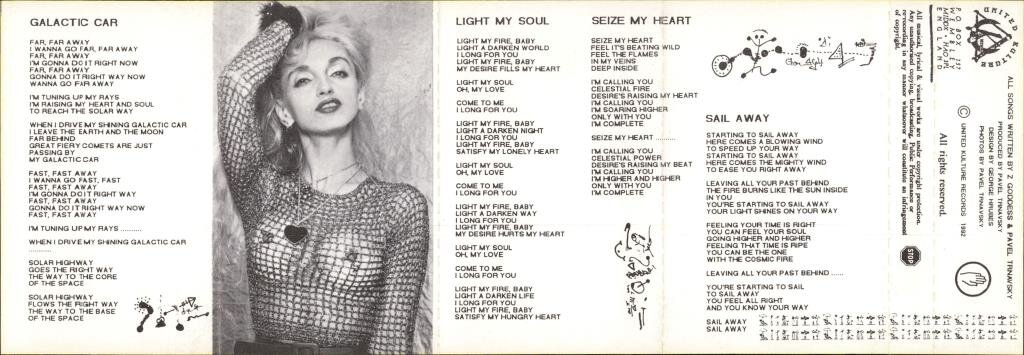 GALACTIC CAR
FAR, FAR AWAY
I WANNA GO FAR, FAR AWAY
FAR, FAR AWAY
I'M GONNA DO IT RIGHT NOW
FAR, FAR AWAY
GONNA DO IT RIGHT WAY NOW
WANNA GO FAR AWAY
I'M TUNING UP MY RAYS
I'M RAISING MY HEART AND SOUL
TO REACH THE SOLAR WAY
WHEN I DRIVE MY SHINING GALACTIC CAR
I LEAVE THE EARTH AND THE MOON
FAR BEHIND
GREAT FIERY COMETS ARE JUST
PASSING BY
MY GALACTIC CAR
FAST, FAST AWAY
I WANNA GO FAST, FAST
FAST, FAST AWAY
I'M GONNA DO IT RIGHT WAY
FAST, FAST AWAY
GONNA DO IT RIGHT WAY NOW
FAST, FAST AWAY
I'M TUNING UP MY RAYS ..........
WHEN I DRIVE MY SHINING GALACTIC CAR
..........
SOLAR HIGHWAY
GOES THE RIGHT WAY
THE WAY TO THE CORE
OF THE SPACE
SOLAR HIGHWAY
FLOWS THE RIGHT WAY
THE WAY TO THE BASE
OF THE SPACE
LIGHT MY SOUL
LIGHT MY FIRE, BABY
LIGHT A DARKEN WORLD
I LONG FOR YOU
LIGHT MY FIRE, BABY
MY DESIRE FILLS MY HEART
LIGHT MY SOUL
OH, MY LOVE
COME TO ME
I LONG FOR YOU
LIGHT MY FIRE, BABY
LIGHT A DARKEN NIGHT
I LONG FOR YOU
LIGHT MY FIRE, BABY
SATISFY MY LONELY HEART
LIGHT MY SOUL
OH, MY LOVE
COME TO ME
I LONG FOR YOU
LIGHT MY FIRE, BABY
LIGHT A DARKEN WAY
I LONG FOR YOU
LIGHT MY FIRE, BABY
MY DESIRE HURTS MY HEART
LIGHT MY SOUL
OH, MY LOVE
COME TO ME
I LONG FOR YOU
LIGHT MY FIRE, BABY
LIGHT A DARKEN LIFE
I LONG FOR YOU
LIGHT MY FIRE, BABY
SATISFY MY HUNGRY HEART
SEIZE MY HEART
SEIZE MY HEART
FEEL IT'S BEATING WILD
FEEL THE FLAMES
IN MY VEINS
DEEP INSIDE
I'M CALLING YOU
CELESTIAL FIRE
DESIRE'S RAISING MY HEART
I'M CALLING YOU
I'M SOARING HIGHER
ONLY WITH YOU
I'M COMPLETE
SEIZE MY HEART ..........
I'M CALLING YOU
CELESTIAL POWER
DESIRE'S RAISING MY BEAT
I'M CALLING YOU
I'M HIGHER AND HIGHER
ONLY WITH YOU
I'M COMPLETE
SAIL AWAY
STARTING TO SAIL AWAY
HERE COMES A BLOWING WIND
TO SPEED UP YOUR WAY
STARTING TO SAIL AWAY
HERE COMES THE MIGHTY WIND
TO EASE YOU RIGHT AWAY
LEAVING ALL YOUR PAST BEHIND
THE FIRE BURNS LIKE THE SUN INSIDE
IN YOU
YOU'RE STARTING TO SAIL AWAY
YOUR LIGHT SHINES ON YOUR WAY
FEELING YOUR TIME IS RIGHT
YOU CAN FEEL YOUR SOUL
GOING HIGHER AND HIGHER
FEELING THAT TIME IS RIPE
YOU CAN BE THE ONE
WITH THE COSMIC FIRE
LEAVING ALL YOUR PAST BEHIND ......
YOU'RE STARTING TO SAIL
TO SAIL AWAY
YOU FEEL ALL RIGHT
AND YOU KNOW YOUR WAY
SAIL AWAY
SAIL AWAY
UNITED KULTURE
P.O. BOX 157
WEMBLEY
MIDDX HA0
ENGLAND
All musical, lyrical & visual works are under copyright protection.
Any unauthorised copying, broadcasting, Public Performance or
re-recording in any manner whatsoever will constitute an infringement
of copyright.
All rights reserved.
STOP
ALL SONGS WRITTEN BY Z GODDESS & PAVEL TRNAVSKY
PRODUCED BY PAVEL TRNAVSKY
DESIGN BY GEORGE HRUBES
PHOTOS BY PAVEL TRNAVSKY
© UNITED KULTURE RECORDS 1992